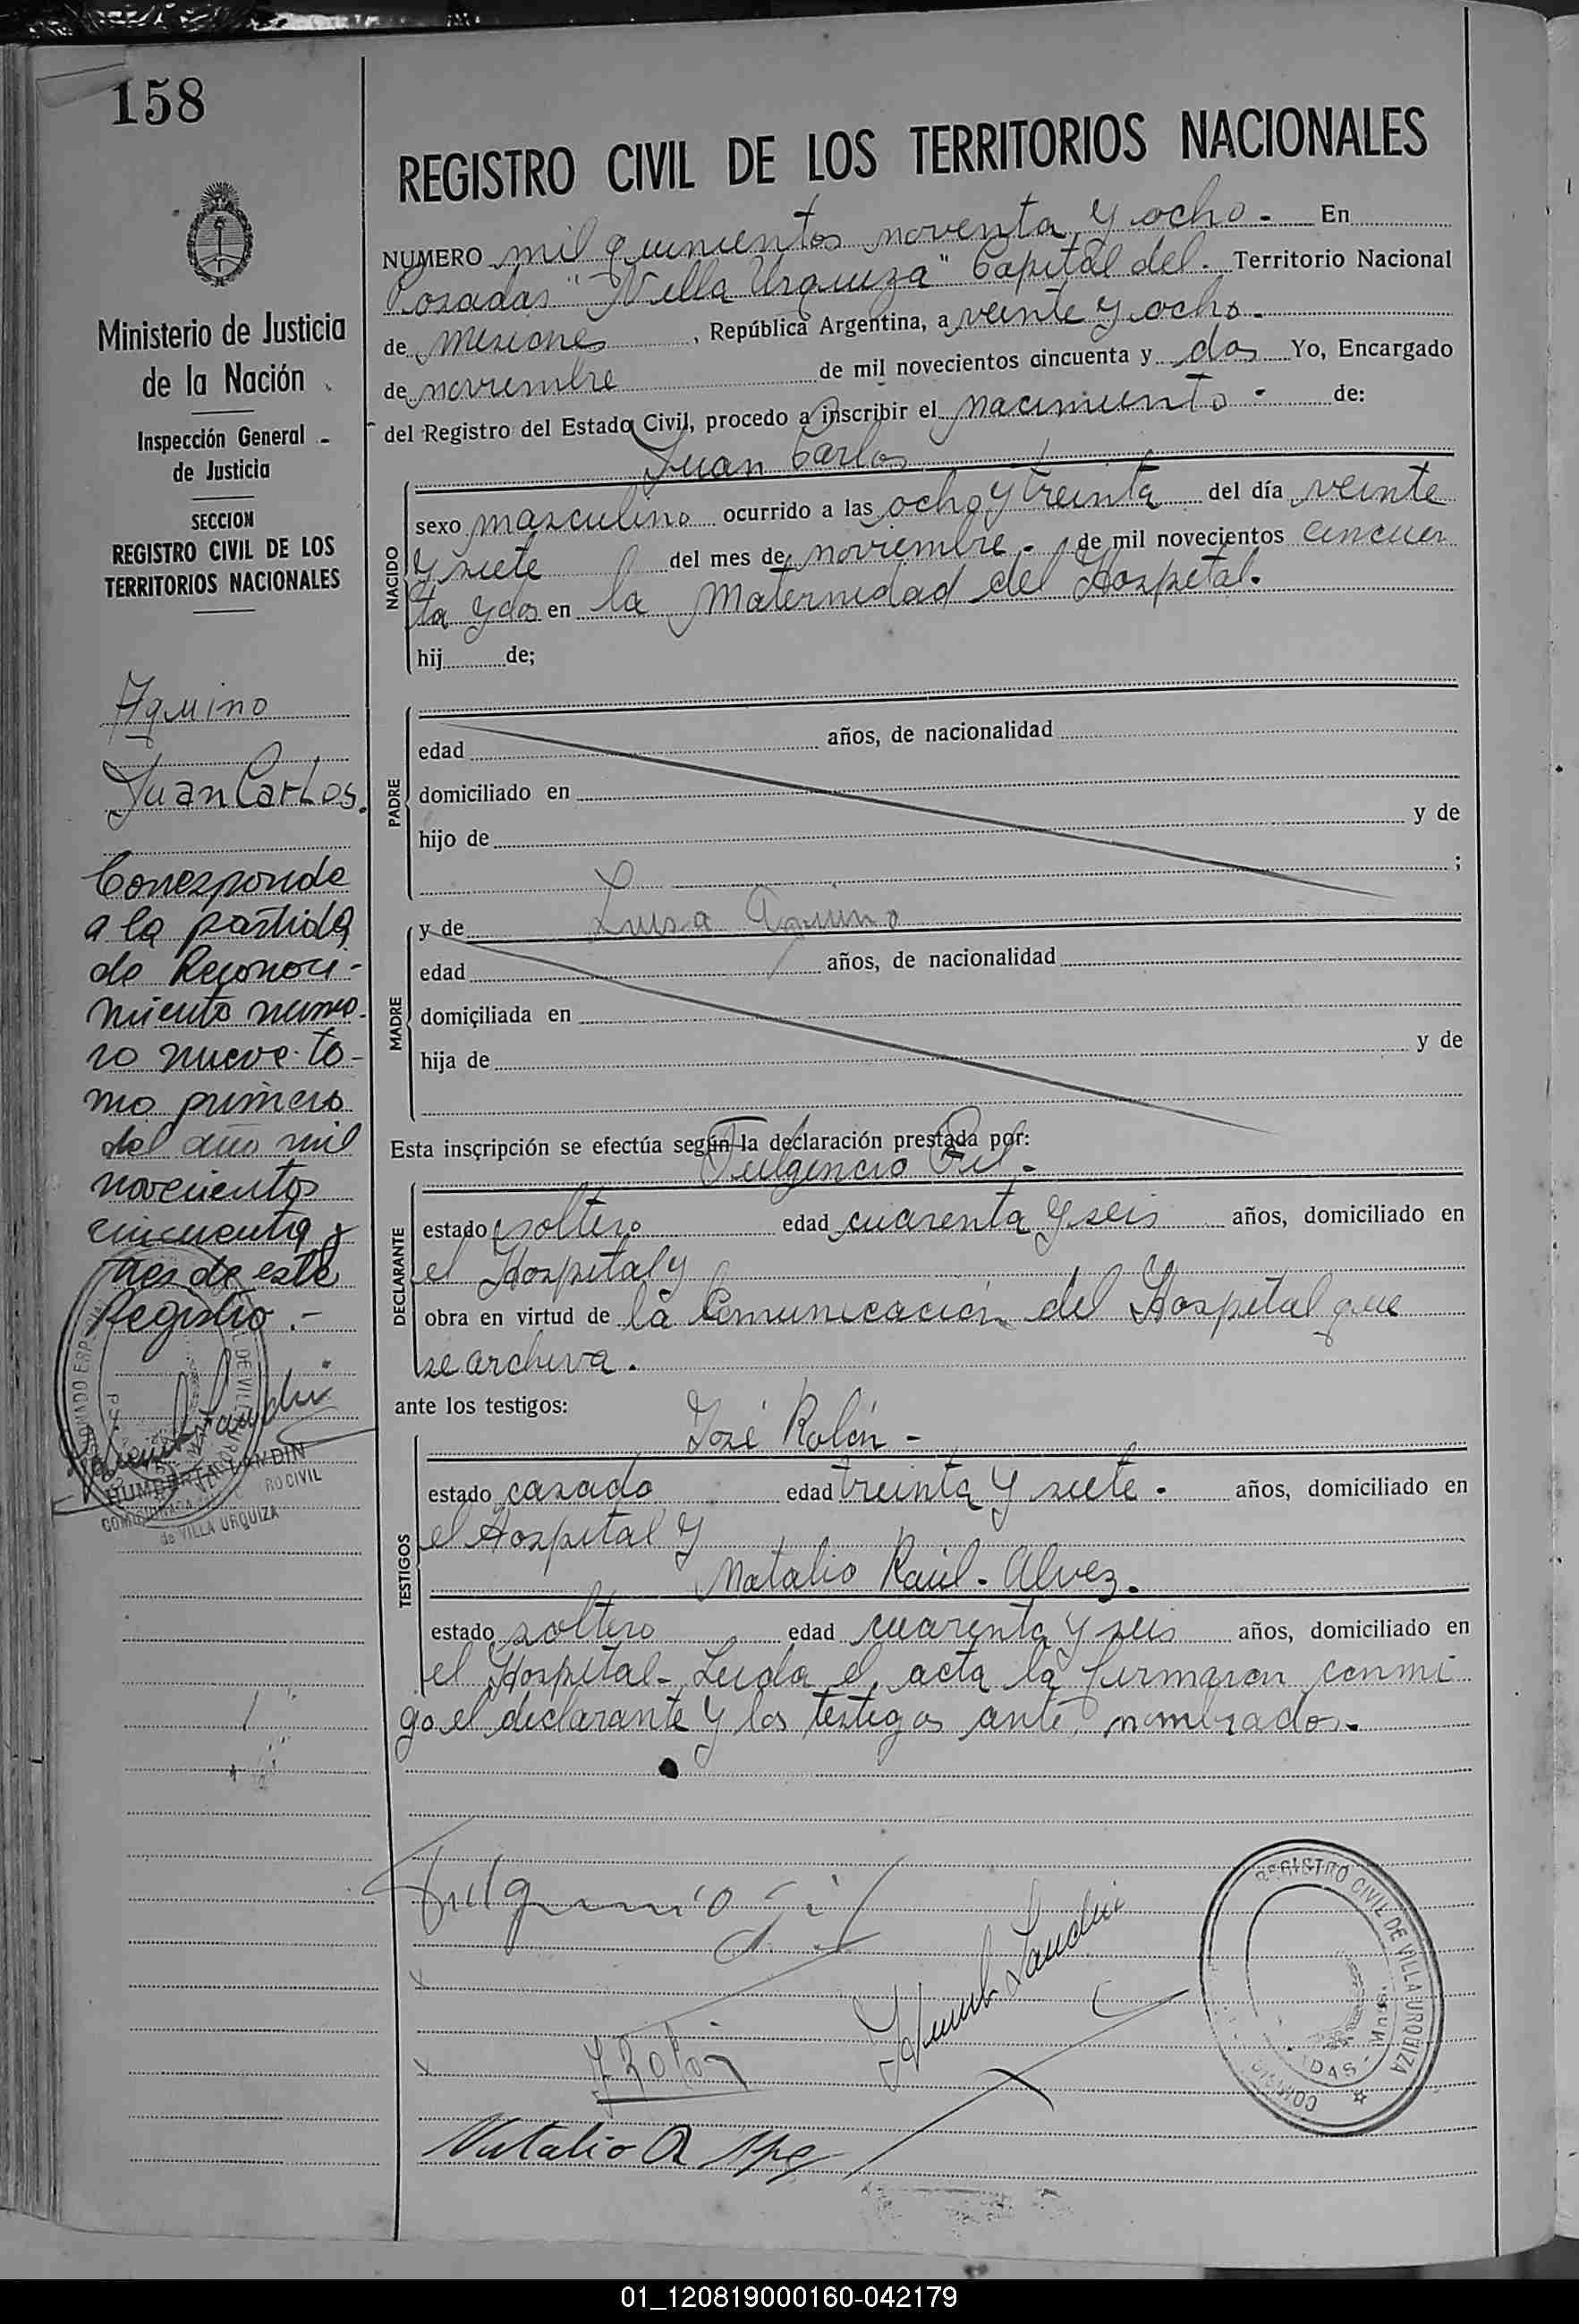 158
Ministerio de Justicia
de la Nación
Inspección General
de Justicia
SECCION
REGISTRO CIVIL DE LOS
TERRITORIOS NACIONALES
Aquino
Juan Carlos.
Corresponde
a la partida
de Reconoci-
miento núme-
ro nueve to-
mo primero
del año mil
novecientos
cincuenta y
tres de este
Registro.-
HUMBERTO LANDIN
RO CIVIL
de VILLA URQUIZA
REGISTRO CIVIL DE LOS TERRITORIOS NACIONALES
NUMERO mil quinientos noventa y ocho - En
Posadas "Villa Urquiza" Capital del. Territorio Nacional
de Misiones , República Argentina, a veinte y ocho -
de noviembre de mil novecientos cincuenta y dos Yo, Encargado
del Registro del Estado Civil, procedo a inscribir el nacimiento - de:
Juan Carlos
NACIDO
sexo masculino ocurrido a las ocho y treinta del día veinte
y siete del mes de noviembre - de mil novecientos cincuen
ta y dos en la Maternidad del Hospital.
hij de;
PADRE
edad años, de nacionalidad
domiciliado en
hijo de y de
;
MADRE
y de Luisa Aquino
edad años, de nacionalidad
domiciliada en
hija de y de
Esta inscripción se efectúa según la declaración prestada por:
Fulgencio Gil -
DECLARANTE
estado soltero edad cuarenta y seis años, domiciliado en
el Hospital y
obra en virtud de la Comunicación del Hospital que
se archiva.
ante los testigos:
José Rolón -
TESTIGOS
estado casado edad treinta y siete - años, domiciliado en
el Hospital y
Natalio Raúl - Alvez.
estado soltero edad cuarenta y seis años, domiciliado en
el Hospital - Leída el acta la firmaron conmi
go el declarante y los testigos ante nombrados.
Fulgencio Gil
Humb Landin
J Rolón
Natalio R
REGISTRO CIVIL DE VILLA URQUIZA
01_120819000160-042179